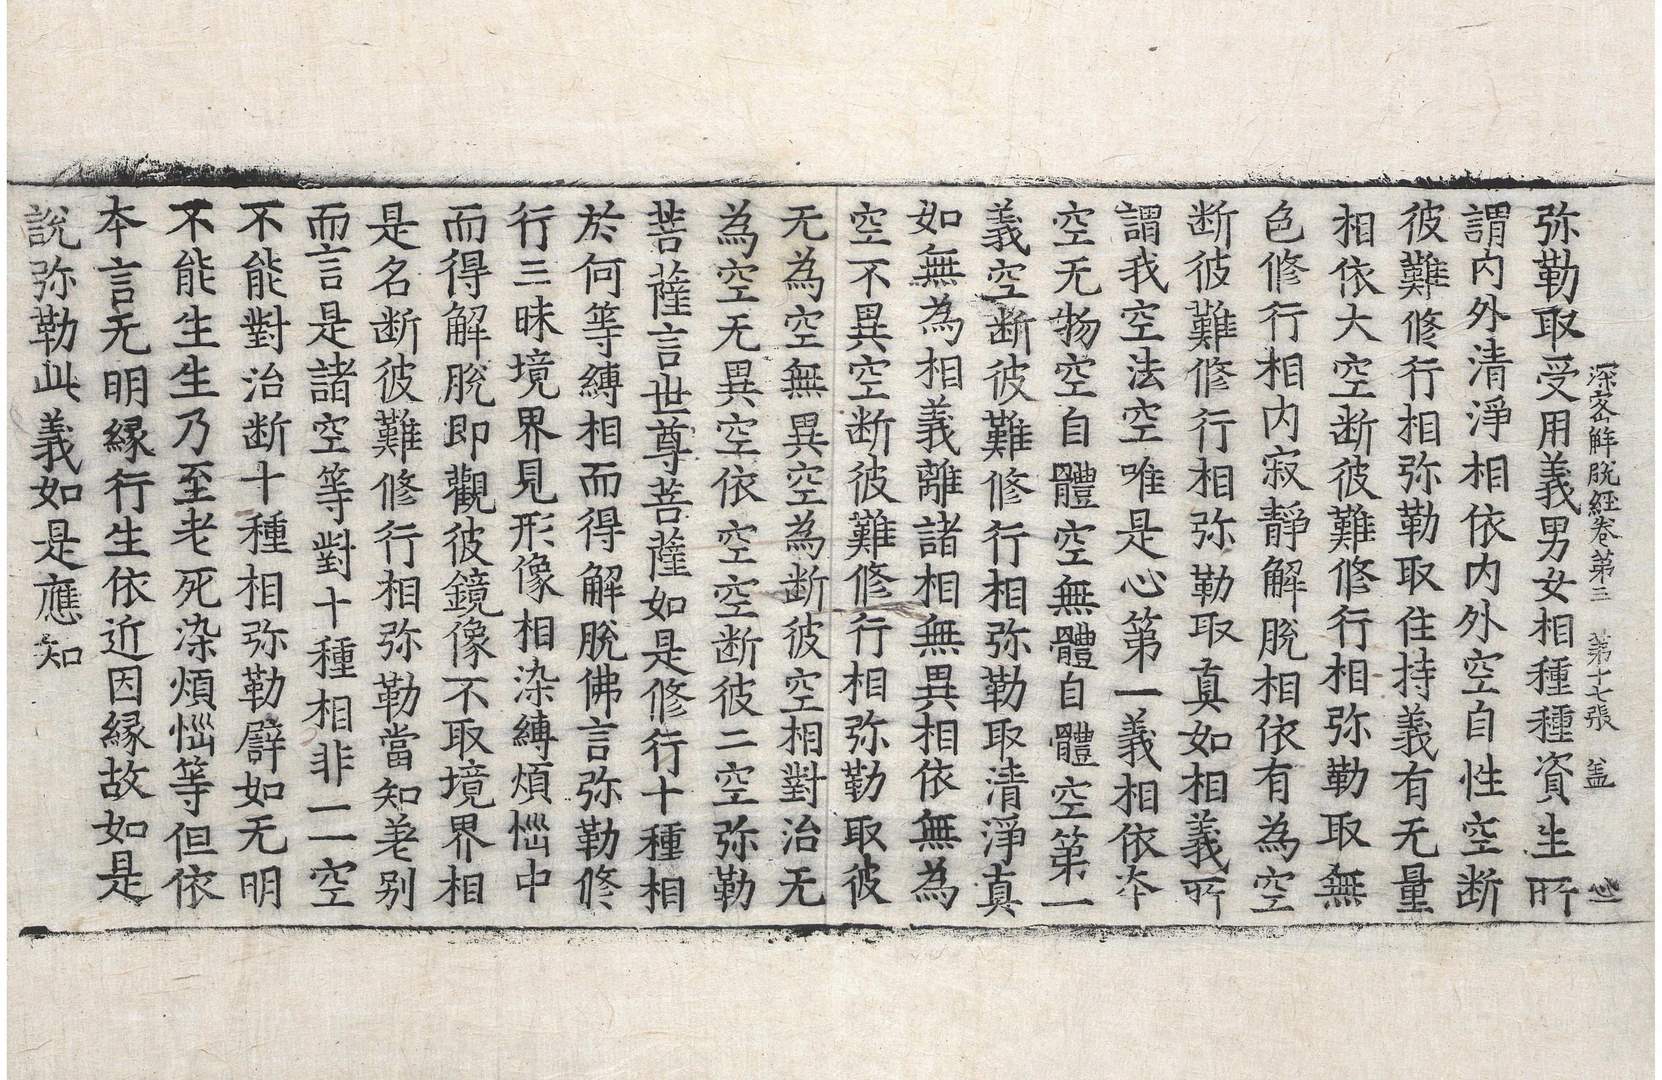 深密解脫經卷第三 第十七張 盖
弥勒取受用義男女相種種資生所
謂内外清淨相依内外空自性空断
彼難修行相弥勒取住持義有无量
相依大空断彼難修行相弥勒取無
色修行相内寂靜解脫相依有為空
断彼難修行相弥勒取真如相義所
謂我空法空唯是心第一義相依夲
空无物空自體空無體自體空第一
義空断彼難修行相弥勒取清淨真
如無為相義離諸相無異相依無為
空不異空断彼難修行相弥勒取彼
无為空無異空為断彼空相對治无
為空无異空依空空断彼二空弥勒
菩薩言世尊菩薩如是修行十種相
於何等縛相而得解脫佛言弥勒修
行三昧境界見形像相染縛煩惱中
而得解脫即觀彼鏡像不取境界相
是名断彼難修行相弥勒當知差别
而言是諸空等對十種相非一一空
不能對治断十種相弥勒譬如无明
不能生生乃至老死染煩惱等但依
夲言无明縁行生依近因縁故如是
說弥勒此義如是應知